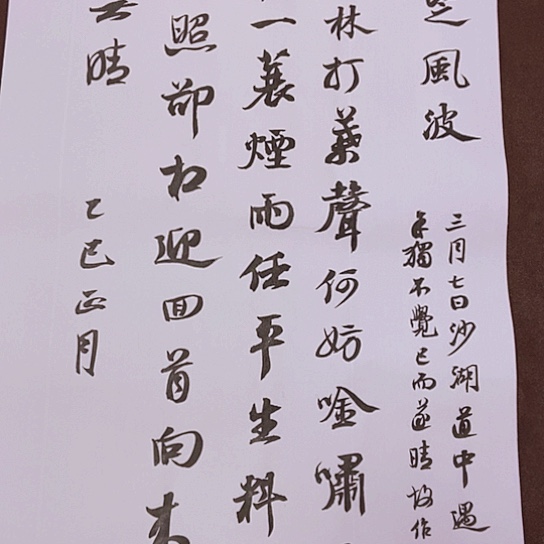 定風波
三月七日沙湖道中遇
余獨不覺已而遂晴故作
林打葉聲何妨唫嘯
一蓑煙雨任平生料
照卻相迎回首向
晴
乙巳正月